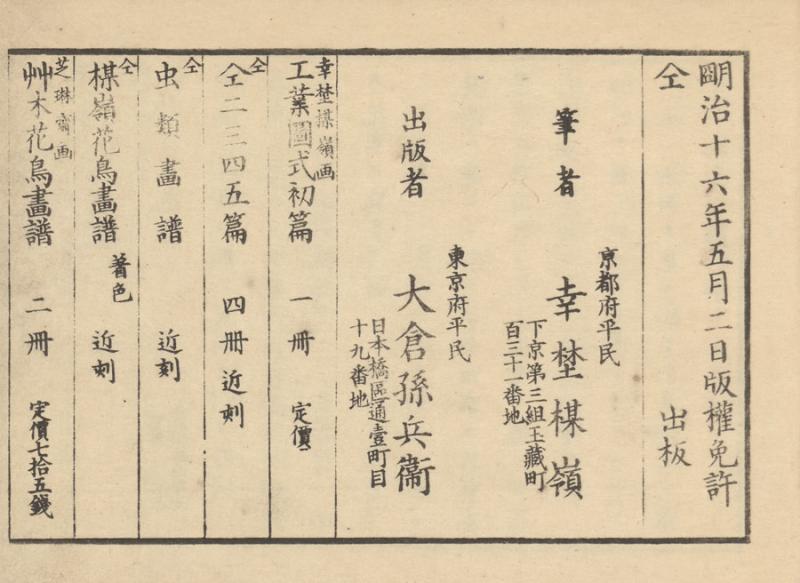 明治十六年五月二日版權免許
仝 出板
筆者 京都府平民
幸埜楳嶺
下京第三組玉藏町
百三十一番地
出版者 東京府平民
大倉孫兵衞
日本橋區通壹町目
十九番地
幸埜楳嶺画
工業圖式初篇 一冊 定價
仝
仝二三四五篇 四冊近刻
仝
虫類畫譜 近刻
仝
楳嶺花鳥畫譜 著色 近刻
芝琳齋画
艸木花鳥畫譜 二冊 定價七拾五錢